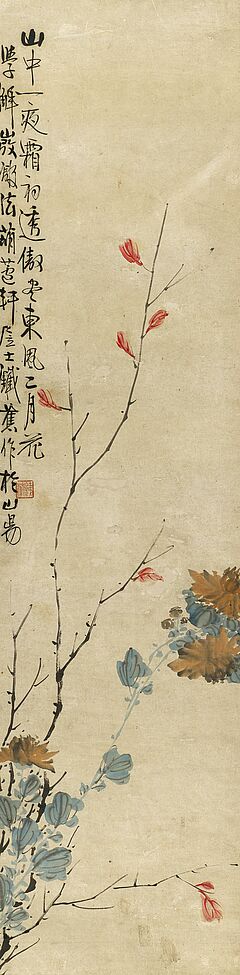 山中一夜霜初透傲東風二月花
學解法軒居士鐵蕉作於山